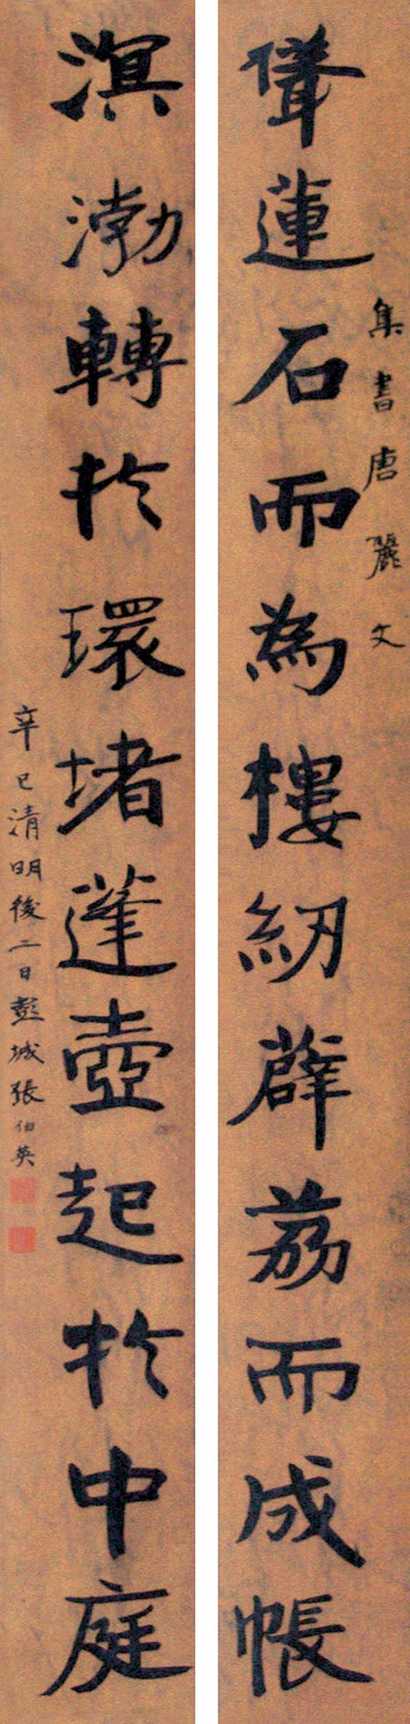 集書唐麗文
聳蓮石而為樓紉薜荔而成帳
溟渤轉於環堵蓬壺起於中庭
辛巳清明後二日彭城張伯英